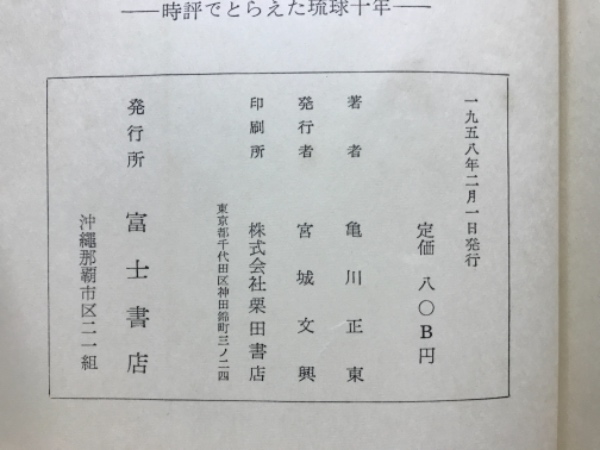 ―時評でとらえた琉球十年―
一九五八年二月一日発行
定価 八〇B円
著者 亀川正東
発行者 宮城文興
印刷所 株式会社栗田書店
東京都千代田区神田錦町三ノ二四
発行所 富士書店
沖縄那覇市区二一組